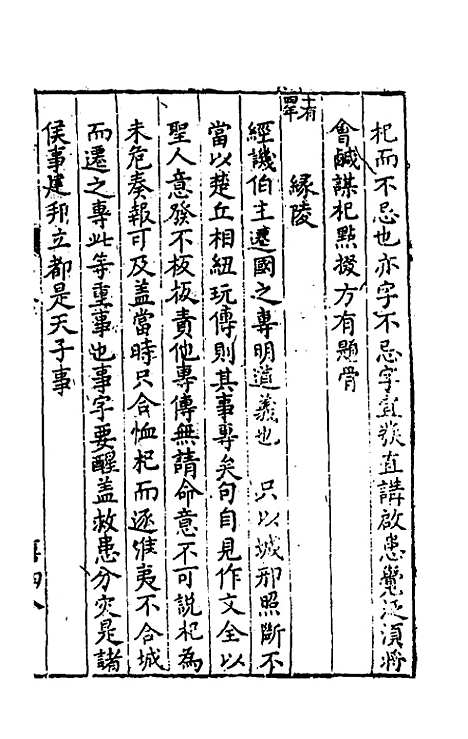 杞而不忌也亦字不忌字宜發直講啟患覺泛須將
會鹹謀杞點掇方有題骨
十有四年
緣陵
經譏伯主遷國之專明道義也 只以城邢照斷不
當以楚丘相紐玩傳則其事專矣句自見作文全以
聖人意發不板板責他專傳無請命意不可說杞為
未危奏報可及盖當時只合恤杞而逐淮夷不合城
而遷之專此等重事也事字要醒盖救患分灾是諸
侯事建邦立都是天子事